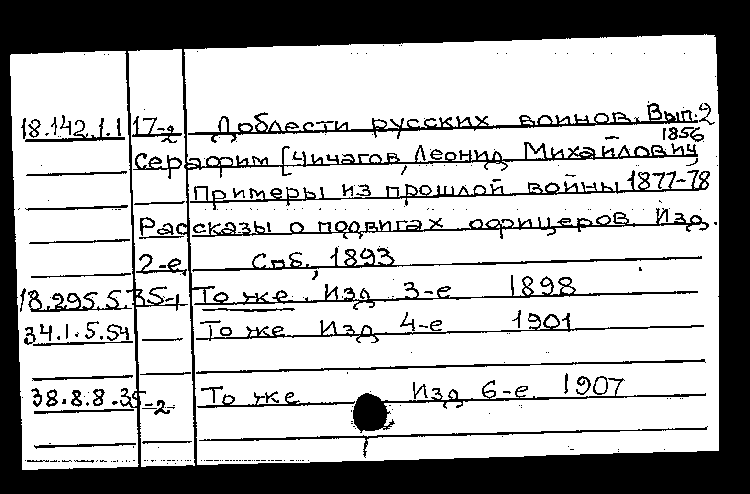 18.142.1.1 17-2 Доблести русских воинов. Вып.2
Серафим [Чичагов, Леонид Михайлович 1856
Примеры из прошлой войны 1877-78
Рассказы о подвигах офицеров. Изд.
2-е. Спб., 1893
18.295.5.35-1 То же. Изд 3-е 1898
34.1.5.54 То же Изд. 4-е 1901
38.8.8.35-2 То же Изд 6-е 1907